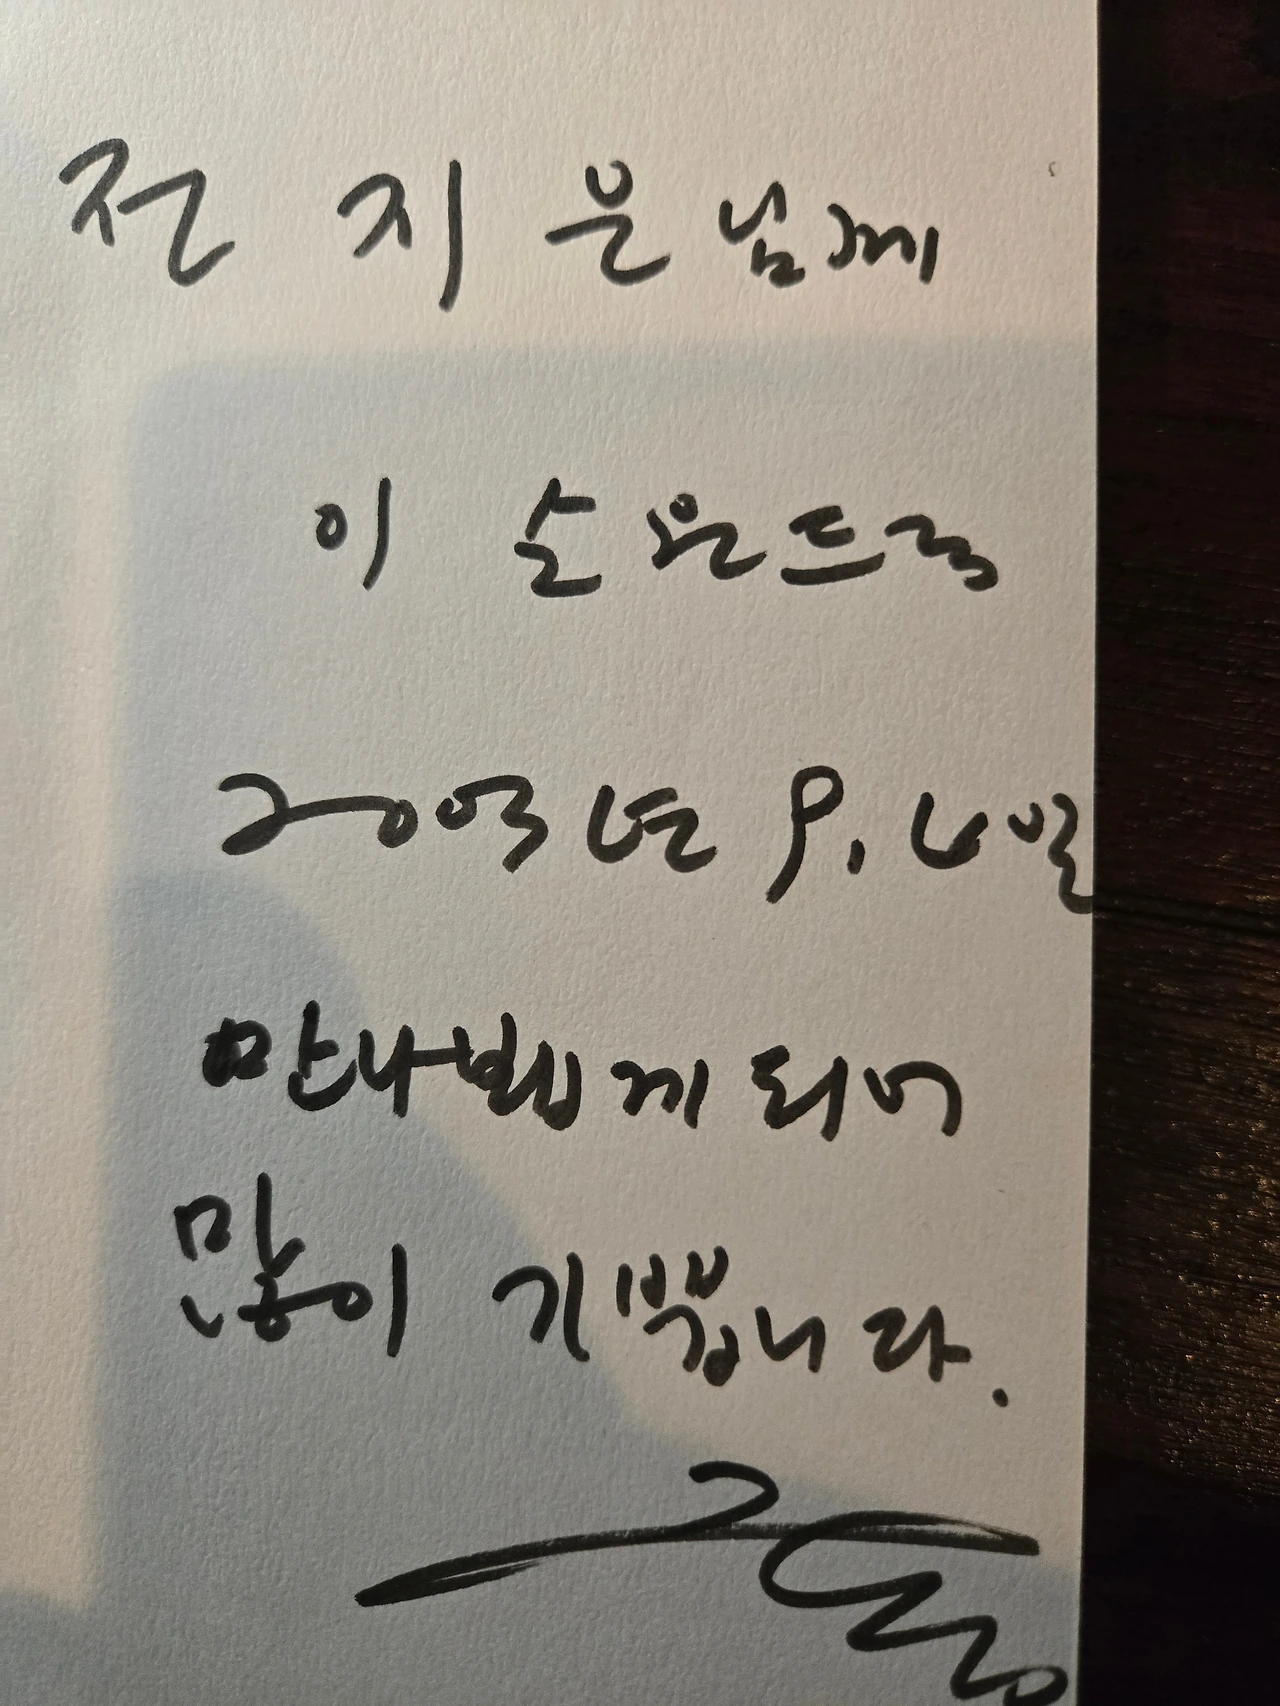 전 지 은 님께
이 순원 드림
2003년 9. 6일
만나뵙게 되어
많이 기쁩니다.